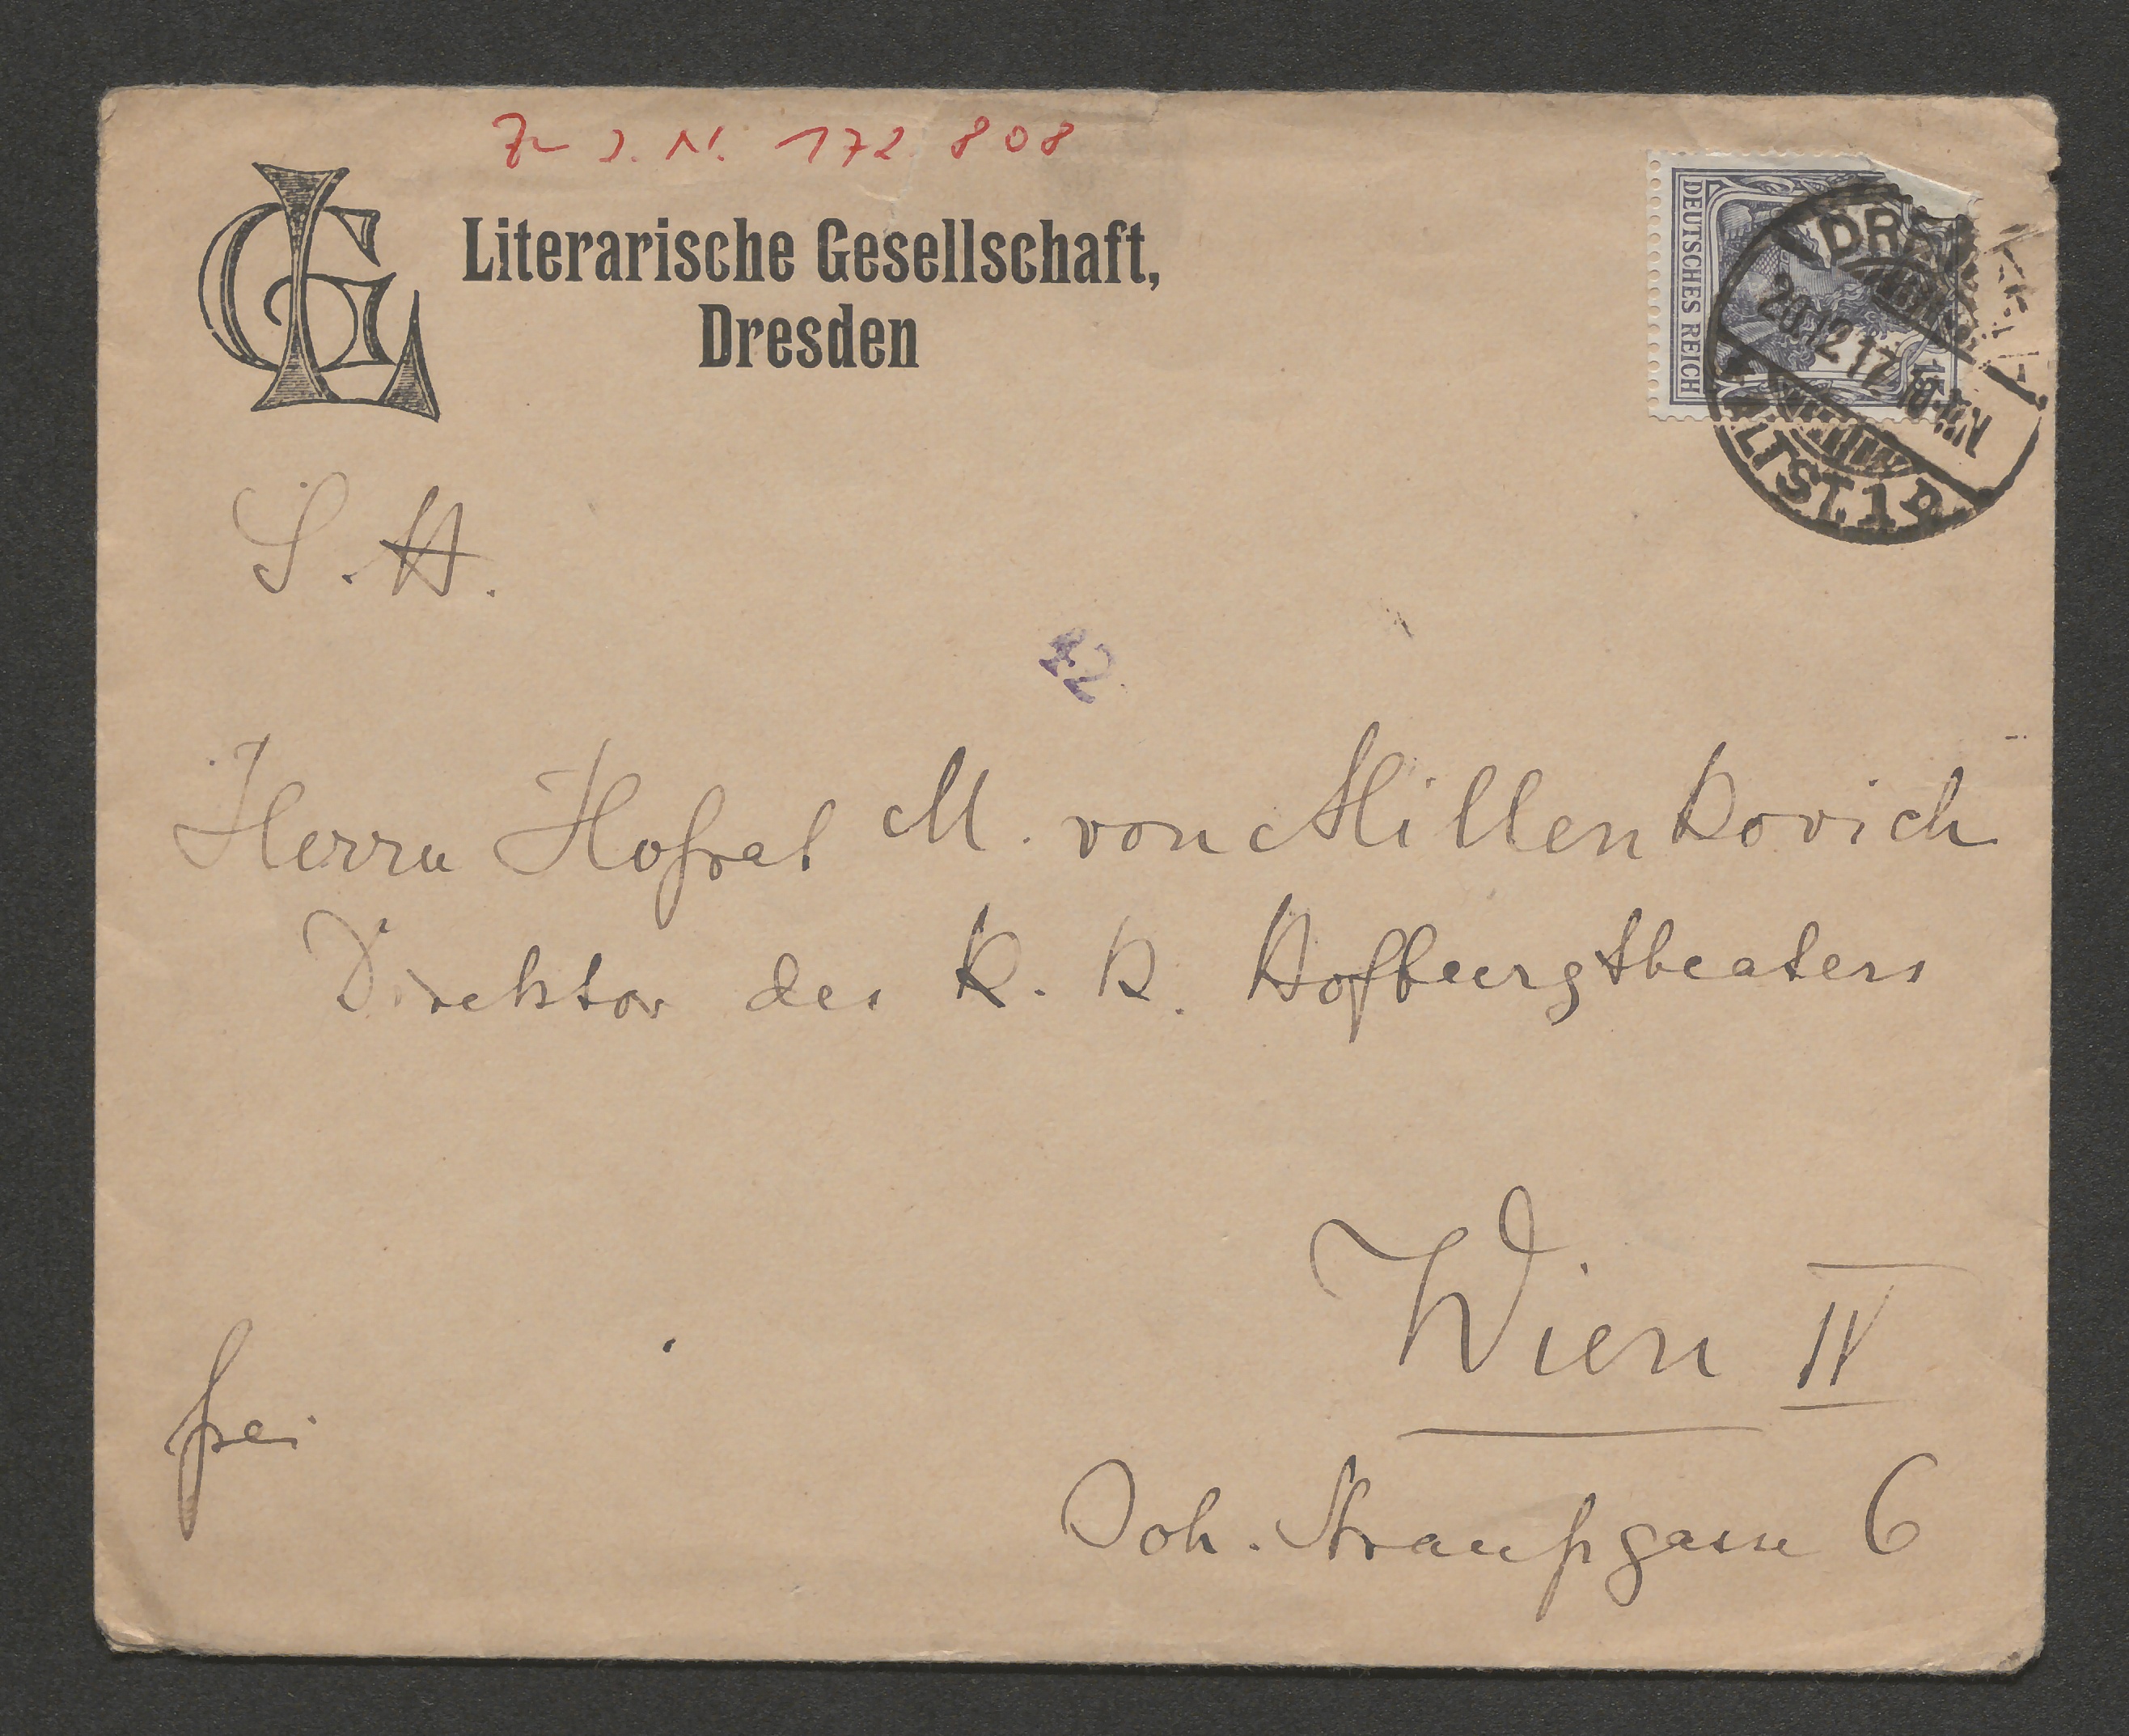 Zu I. N. 172 808
LG
Literarische Gesellschaft,
Dresden
DEUTSCHES REICH
20.12.17
ALTST. 1
S. H.
42
Herrn Hofrat M. von Millenkovich
Direktor des K. K. Hofburgtheaters
Wien IV
frei
Joh. Straußgasse 6